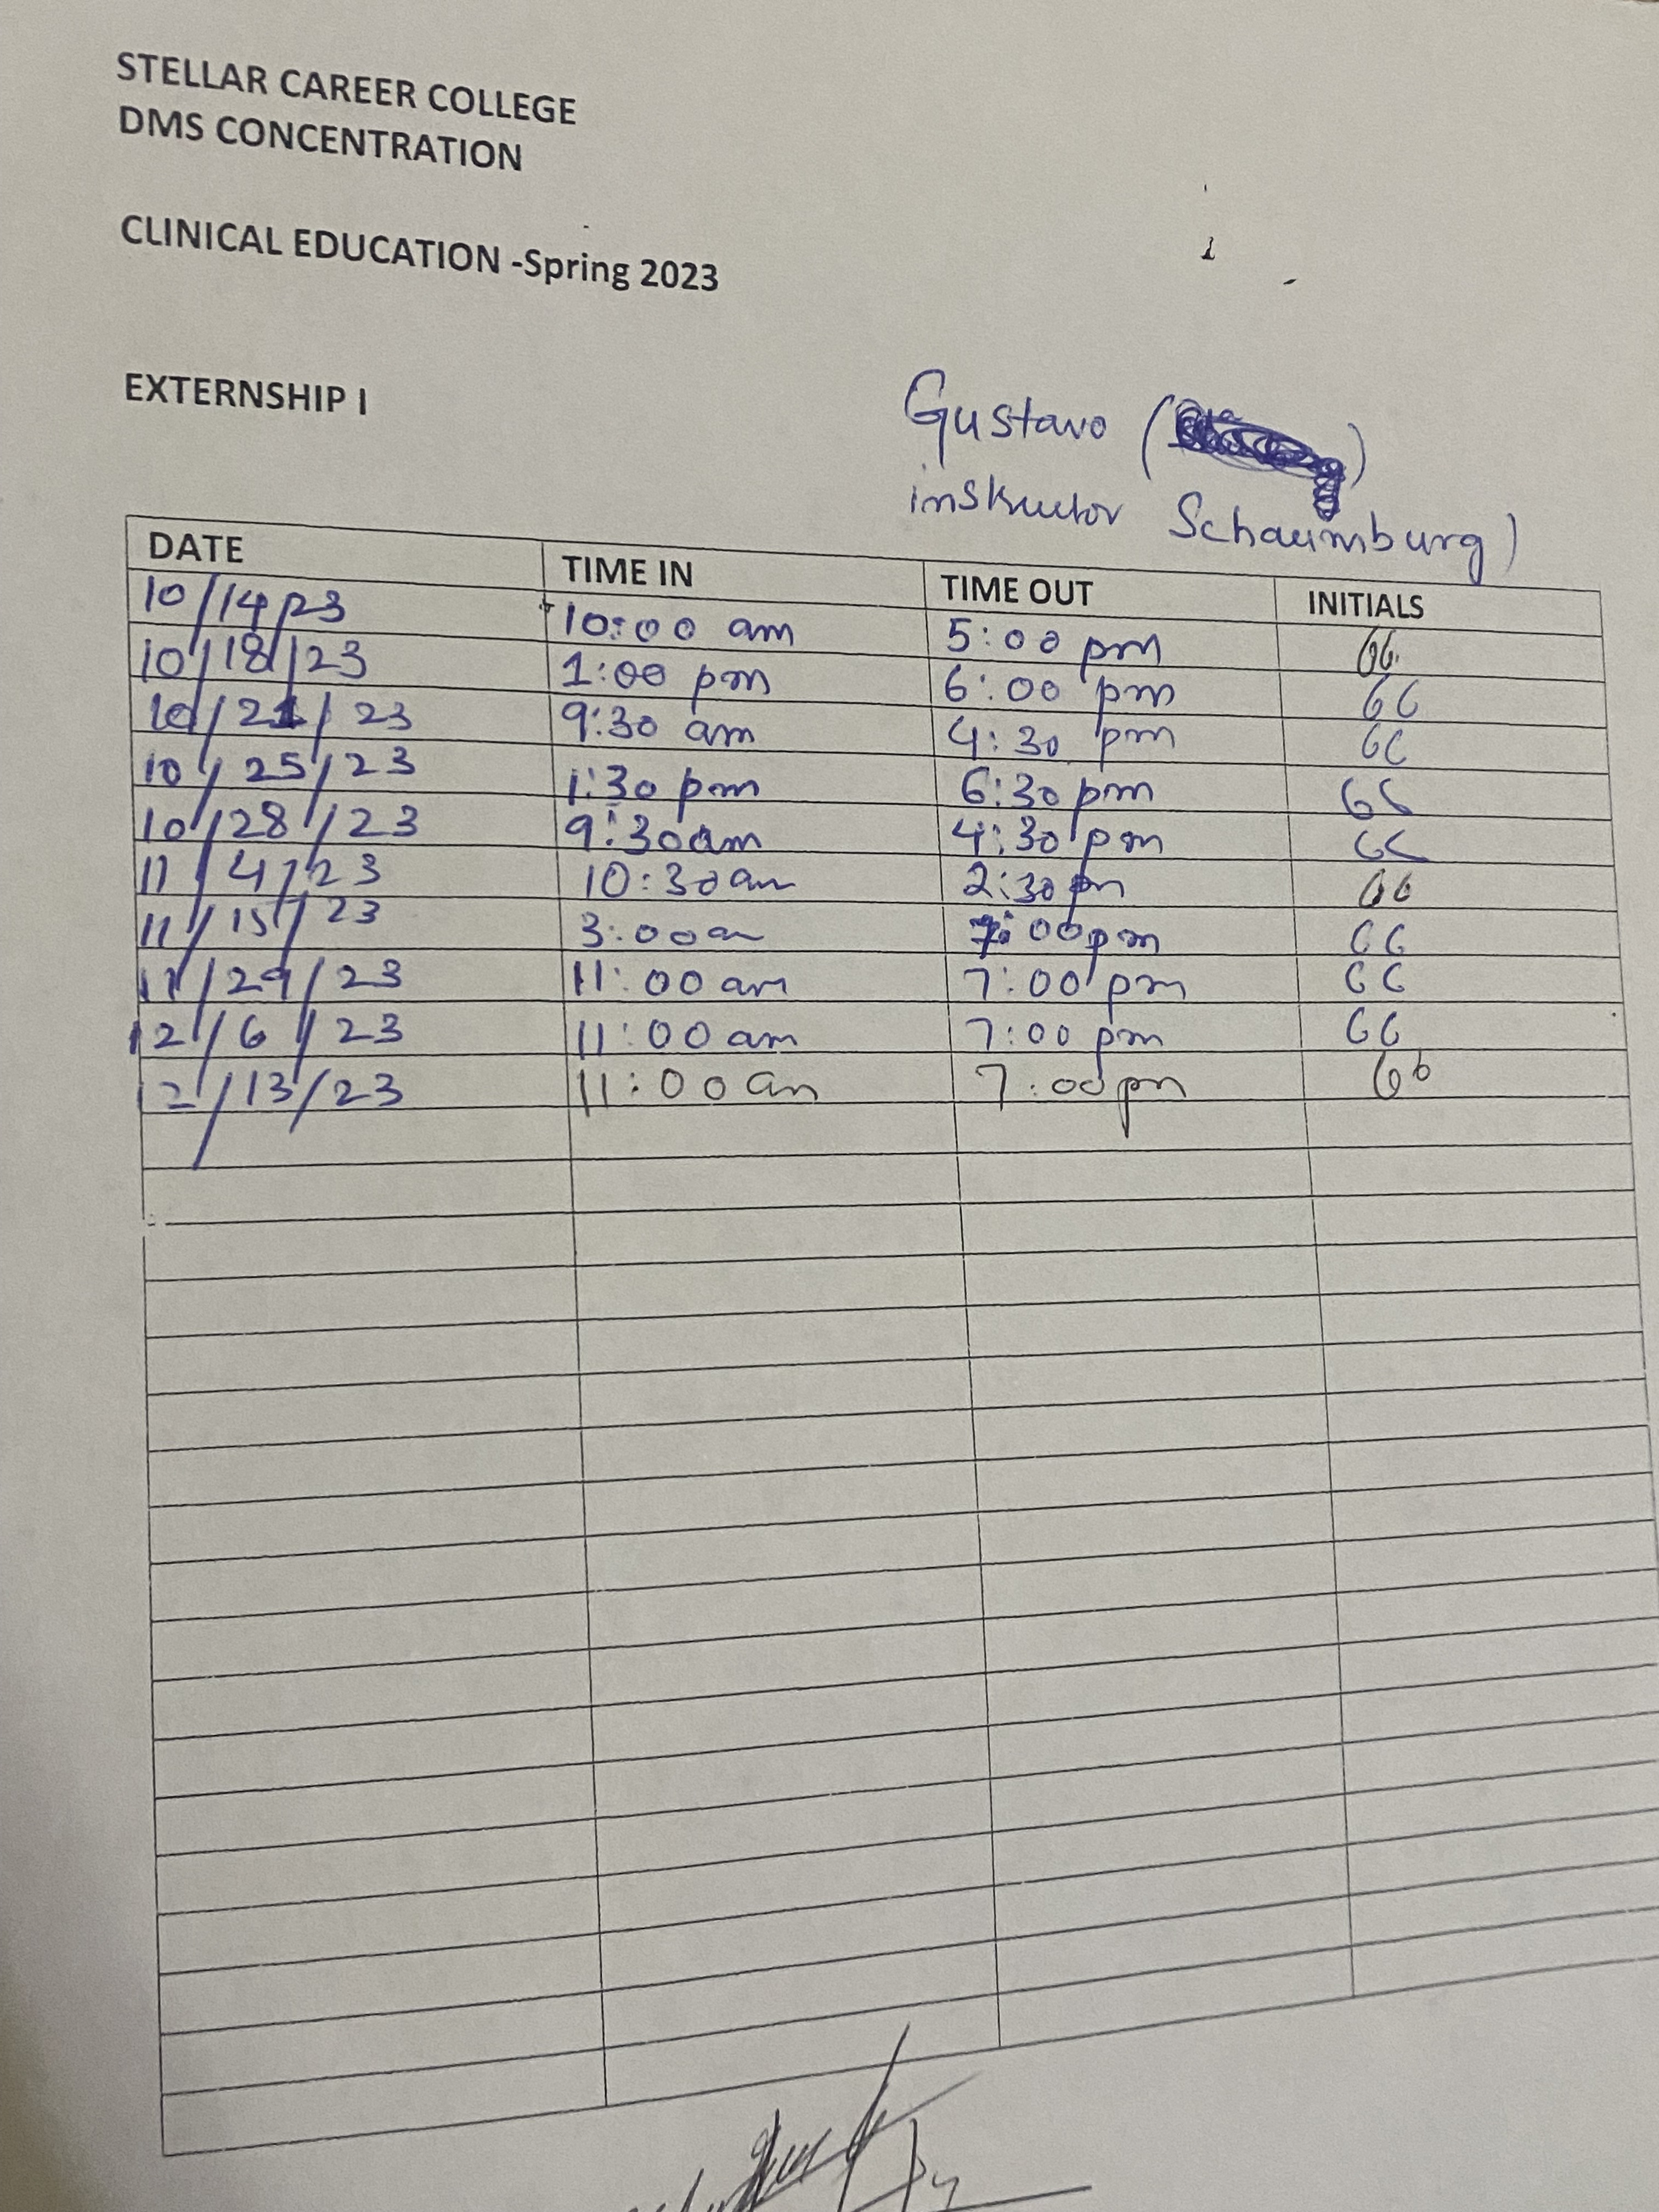 STELLAR CAREER COLLEGE
DMS CONCENTRATION
CLINICAL EDUCATION -Spring 2023
EXTERNSHIP I
Gustavo ( )
instructor Schaumburg)
DATE TIME IN TIME OUT INITIALS
10/14/23 10:00 am 5:00 pm GG
10/18/23 1:00 pm 6:00 pm GG
10/21/23 9:30 am 4:30 pm GG
10/25/23 1:30 pm 6:30 pm GG
10/28/23 9:30am 4:30 pm GG
11/4/23 10:30am 2:30pm GG
11/15/23 3:00am 7:00pm GG
11/29/23 11:00 am 7:00 pm GG
12/6/23 11:00 am 7:00 pm GG
12/13/23 11:00 am 7:00pm GG